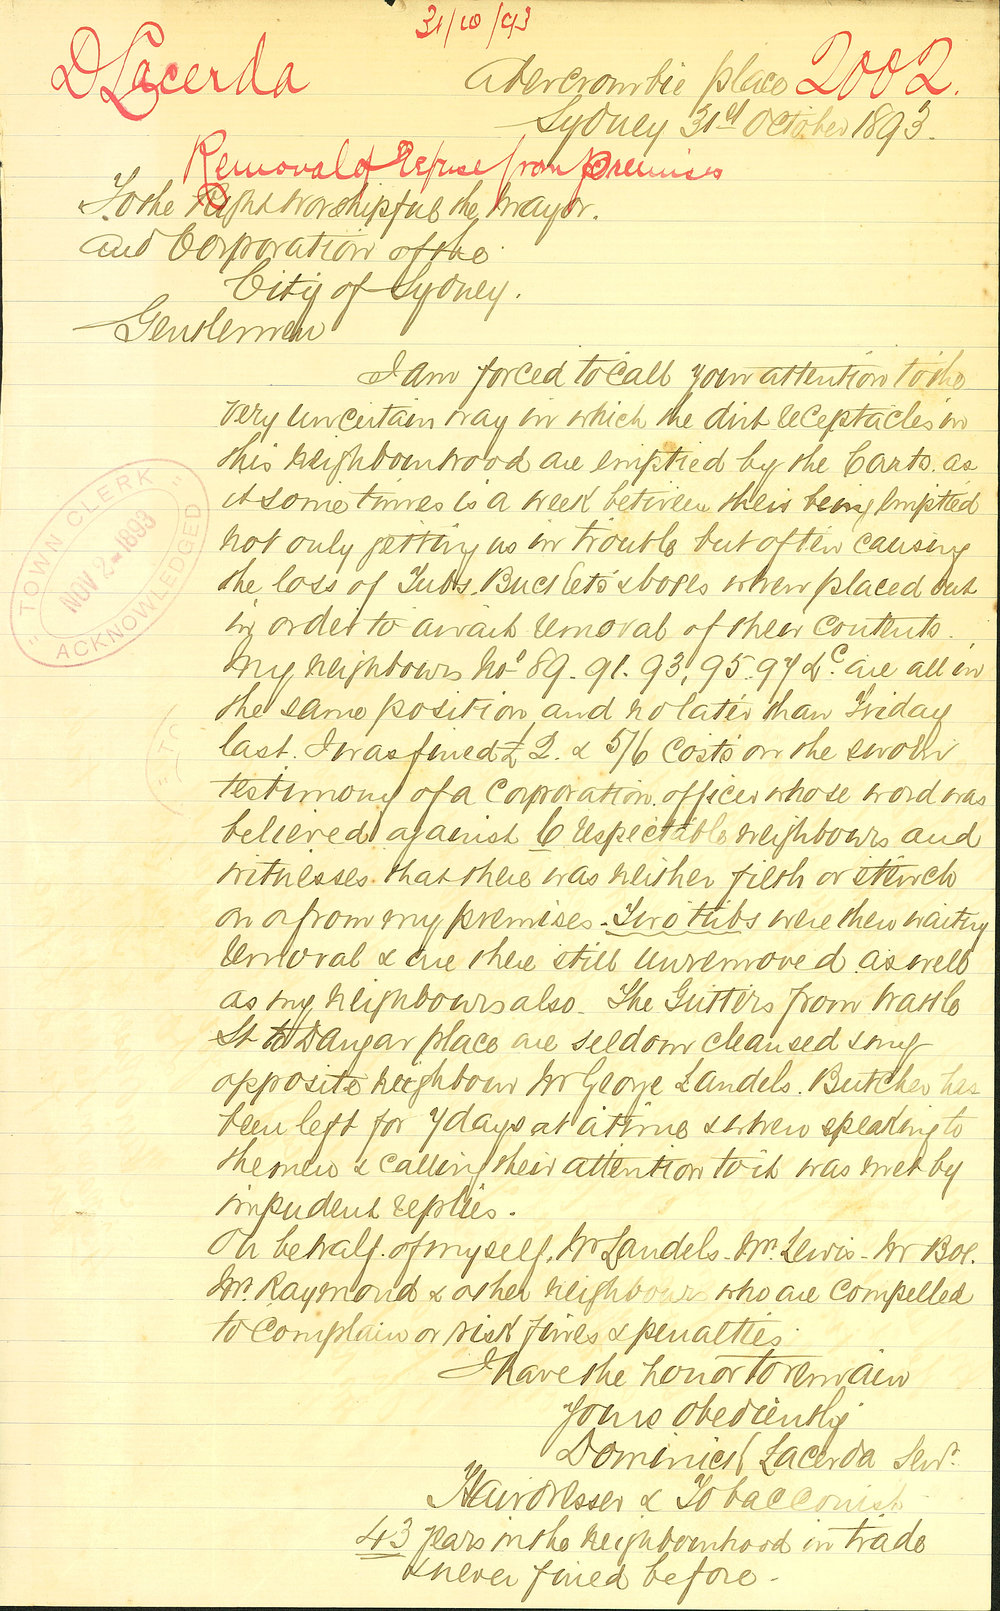 31/10/93
D Lacerda
2002.
Abercrombie place
Sydney 31st October 1893.
Removal of Refuse from premises
To the Right Worshipful the Mayor.
and Corporation of the
City of Sydney.
Gentlemen
I am forced to call your attention to the
very uncertain way in which the dirt receptacles in
this neighbourhood are emptied by the Carts. as
it sometimes is a week between their being emptied
not only getting us in trouble but often causing
the loss of Tubs. Buckets & boxes when placed out
in order to await removal of their contents.
My neighbours Nos 89. 91. 93, 95. 97 &c. are all in
the same position and no later than Friday
last. I was fined £2. & 5/6 costs on the sworn
testimony of a Corporation officer whose word was
believed against 6 respectable neighbours and
witnesses that there was neither filth or stench
on or from my premises. Two tubs were then waiting
removal & are there still unremoved as well
as my neighbours also. The Gutters from Wattle
St to Dangar place are seldom cleansed & my
opposite neighbour Mr George Landels. Butcher has
been left for 7 days at a time & when speaking to
the men & calling their attention to it was met by
impudent replies.
On behalf of myself, Mr Landels - Mr. Lewis - Mr Box.
Mr. Raymond & other neighbours who are compelled
to complain or risk fines & penalties.
I have the honor to remain
Yours obediently
Dominick Lacerda Senr.
Hairdresser & Tobacconist
43 years in the neighbourhood in trade
& never fined before -
"TOWN CLERK"
NOV 2 - 1893
ACKNOWLEDGED